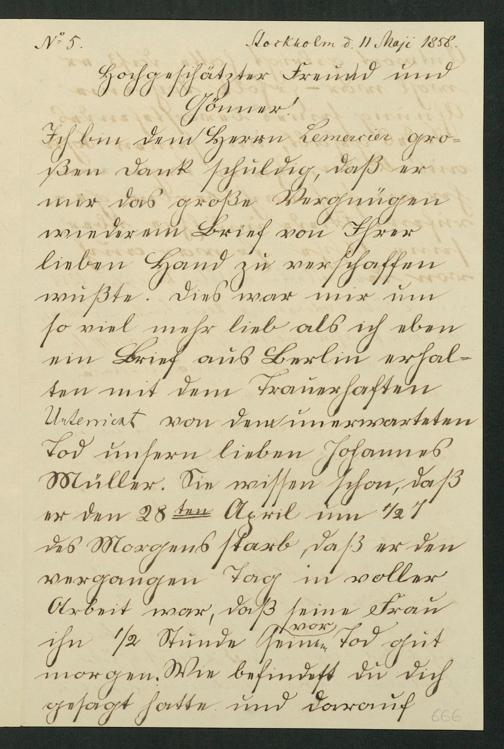 No 5.
Stockholm d. 11 Maji 1858.
Hochgeschätzter Freund und
Gönner!
Ich bin dem Herrn Lemercier gro=
ßen Dank schuldig, daß er
mir das große Vergnügen
wiederem Brief von Ihrer
lieben Hand zu verschaffen
wußte. Dies war mir um
so viel mehr lieb als ich eben
ein Brief aus Berlin erhal=
ten mit dem Trauerhaften
Unterricht von dem unerwarteten
Tod unsern lieben Johannes
Müller. Sie wissen schon, daß
er den 28ten April um 1/2 7
des Morgens starb, daß er den
vergangen Tag in voller
Arbeit war, daß seine Frau
ihn 1/2 Stunde vor seinen Tod gut
morgen. Wie befindest du dich
gesagt hatte und darauf
666